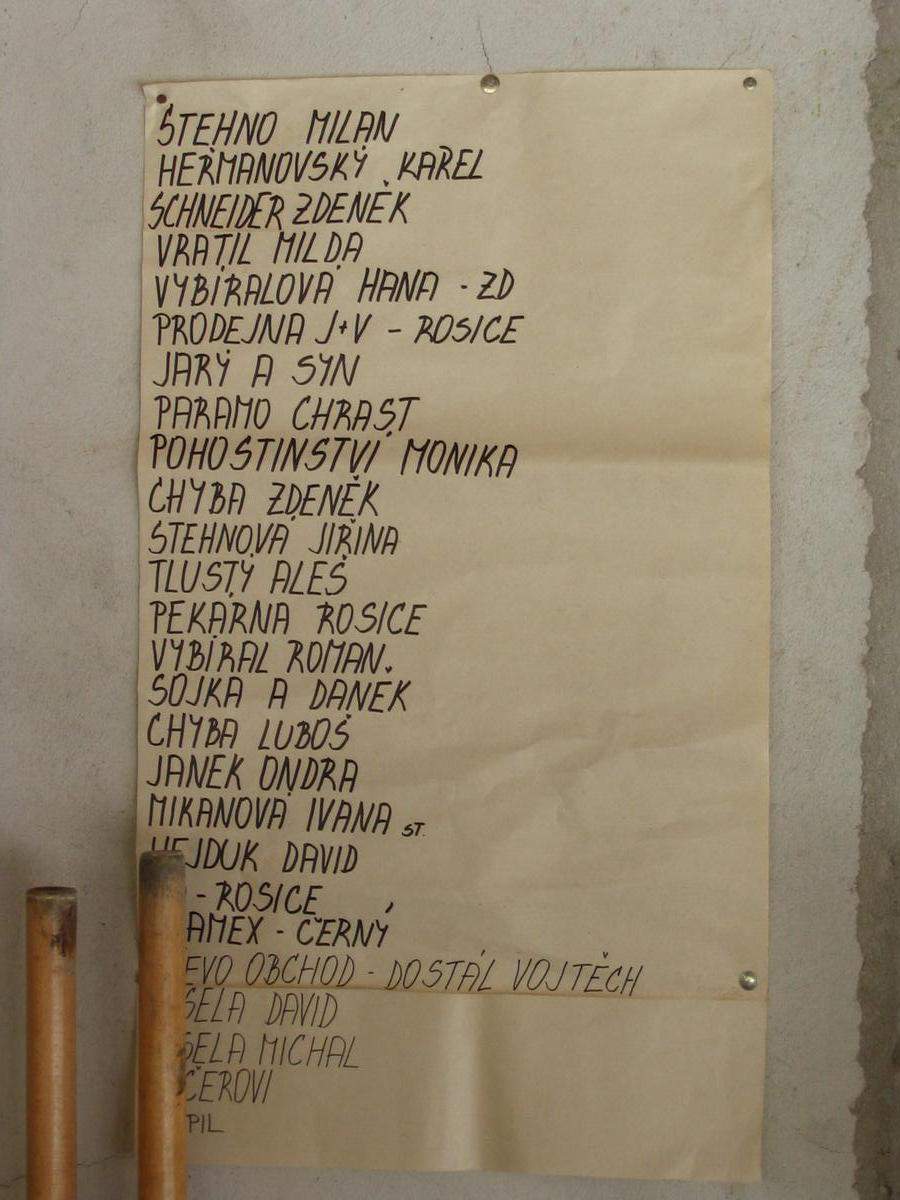 STEHNO MILAN
HEŘMANOVSKÝ KAREL
SCHNEIDER ZDENĚK
VRATIL MILDA
VYBÍRALOVÁ HANA - ZD
PRODEJNA J+V - ROSICE
JARÝ A SYN
PARAMO CHRAST
POHOSTINSTVÍ MONIKA
CHYBA ZDENĚK
STEHNOVÁ JIŘINA
TLUSTÝ ALEŠ
PEKÁRNA ROSICE
VYBÍRAL ROMAN
SOJKA A DANĚK
CHYBA LUBOŠ
JANEK ONDRA
MIKANOVÁ IVANA ST.
HEJDUK DAVID
- ROSICE
AMEX - ČERNÝ
EVO OBCHOD - DOSTÁL VOJTĚCH
DAVID
MICHAL
ČEROVI
PIL